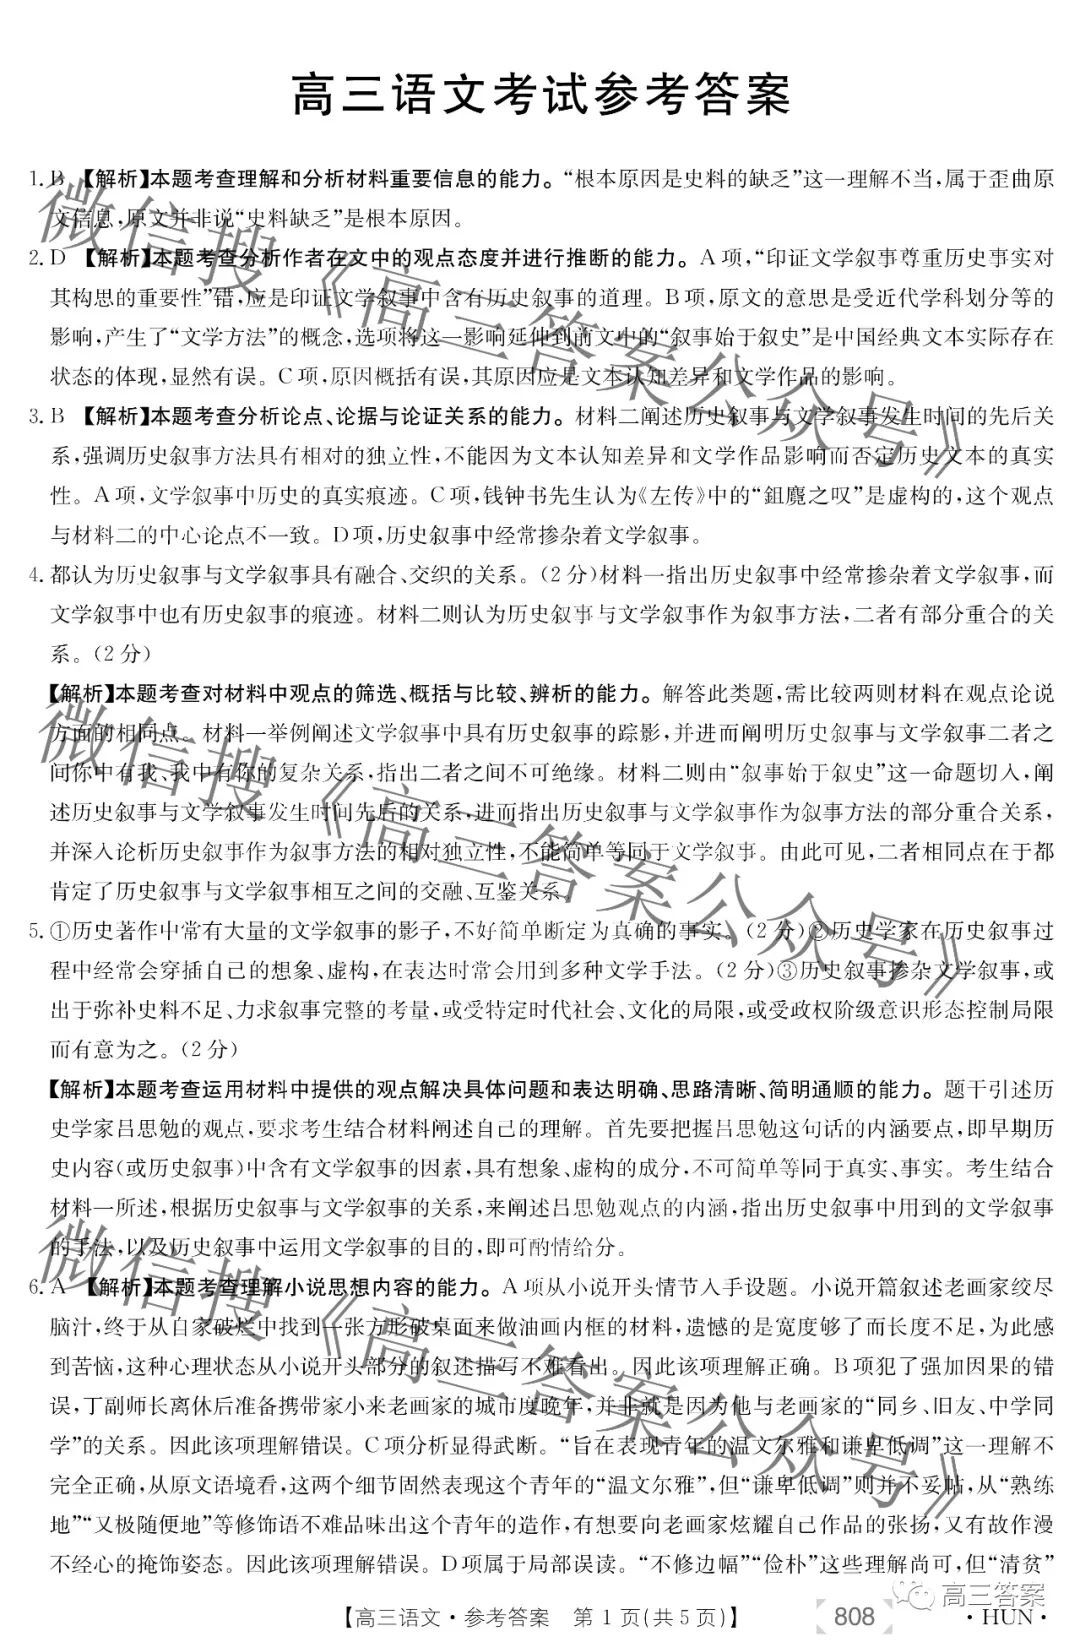 高三语文考试参考答案
1. B 【解析】本题考查理解和分析材料重要信息的能力。“根本原因是史料的缺乏”这一理解不当,属于歪曲原
文信息,原文并非说“史料缺乏”是根本原因。
2. D 【解析】本题考查分析作者在文中的观点态度并进行推断的能力。A项,“印证文学叙事尊重历史事实对
其构思的重要性”错,应是印证文学叙事中含有历史叙事的道理。B项,原文的意思是受近代学科划分等的
影响,产生了“文学方法”的概念,选项将这一影响延伸到前文中的“叙事始于叙史”是中国经典文本实际存在
状态的体现,显然有误。C项,原因概括有误,其原因应是文本认知差异和文学作品的影响。
3. B 【解析】本题考查分析论点、论据与论证关系的能力。材料二阐述历史叙事与文学叙事发生时间的先后关
系,强调历史叙事方法具有相对的独立性,不能因为文本认知差异和文学作品影响而否定历史文本的真实
性。A项,文学叙事中历史的真实痕迹。C项,钱钟书先生认为《左传》中的“鉏麑之叹”是虚构的,这个观点
与材料二的中心论点不一致。D项,历史叙事中经常掺杂着文学叙事。
4. 都认为历史叙事与文学叙事具有融合、交织的关系。(2分)材料一指出历史叙事中经常掺杂着文学叙事,而
文学叙事中也有历史叙事的痕迹。材料二则认为历史叙事与文学叙事作为叙事方法,二者有部分重合的关
系。(2分)
【解析】本题考查对材料中观点的筛选、概括与比较、辨析的能力。解答此类题,需比较两则材料在观点论说
方面的相同点。材料一举例阐述文学叙事中具有历史叙事的踪影,并进而阐明历史叙事与文学叙事二者之
间你中有我、我中有你的复杂关系,指出二者之间不可绝缘。材料二则由“叙事始于叙史”这一命题切入,阐
述历史叙事与文学叙事发生时间先后的关系,进而指出历史叙事与文学叙事作为叙事方法的部分重合关系,
并深入论析历史叙事作为叙事方法的相对独立性,不能简单等同于文学叙事。由此可见,二者相同点在于都
肯定了历史叙事与文学叙事相互之间的交融、互鉴关系。
5. ①历史著作中常有大量的文学叙事的影子,不好简单断定为真确的事实。(2分)②历史学家在历史叙事过
程中经常会穿插自己的想象、虚构,在表达时常会用到多种文学手法。(2分)③历史叙事掺杂文学叙事,或
出于弥补史料不足、力求叙事完整的考量,或受特定时代社会、文化的局限,或受政权阶级意识形态控制局限
而有意为之。(2分)
【解析】本题考查运用材料中提供的观点解决具体问题和表达明确、思路清晰、简明通顺的能力。题干引述历
史学家吕思勉的观点,要求考生结合材料阐述自己的理解。首先要把握吕思勉这句话的内涵要点,即早期历
史内容(或历史叙事)中含有文学叙事的因素,具有想象、虚构的成分,不可简单等同于真实、事实。考生结合
材料一所述,根据历史叙事与文学叙事的关系,来阐述吕思勉观点的内涵,指出历史叙事中用到的文学叙事
的手法,以及历史叙事中运用文学叙事的目的,即可酌情给分。
6. A 【解析】本题考查理解小说思想内容的能力。A项从小说开头情节入手设题。小说开篇叙述老画家绞尽
脑汁,终于从自家破烂中找到一张方形破桌面来做油画内框的材料,遗憾的是宽度够了而长度不足,为此感
到苦恼,这种心理状态从小说开头部分的叙述描写不难看出。因此该项理解正确。B项犯了强加因果的错
误,丁副师长离休后准备携带家小来老画家的城市度晚年,并非就是因为他与老画家的“同乡、旧友、中学同
学”的关系。因此该项理解错误。C项分析显得武断。“旨在表现青年的温文尔雅和谦卑低调”这一理解不
完全正确,从原文语境看,这两个细节固然表现这个青年的“温文尔雅”,但“谦卑低调”则并不妥帖,从“熟练
地”“又极随便地”等修饰语不难品味出这个青年的造作,有想要向老画家炫耀自己作品的张扬,又有故作漫
不经心的掩饰姿态。因此该项理解错误。D项属于局部误读。“不修边幅”“俭朴”这些理解尚可,但“清贫”
【高三语文·参考答案 第1页(共5页)】
808
·HUN·
高三答案
微信搜《高三答案公众号》
微信搜《高三答案公众号》
微信搜《高三答案公众号》